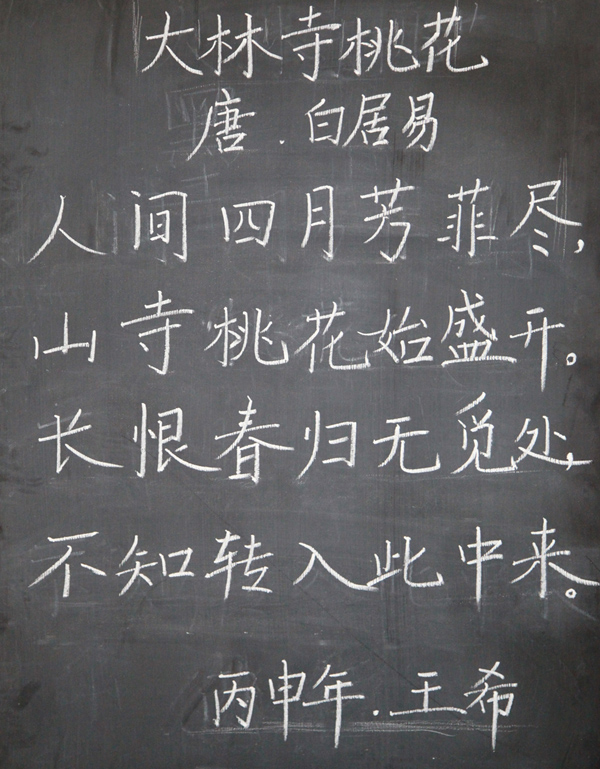 大林寺桃花
唐.白居易
人间四月芳菲尽,
山寺桃花始盛开。
长恨春归无觅处,
不知转入此中来。
丙申年.王希